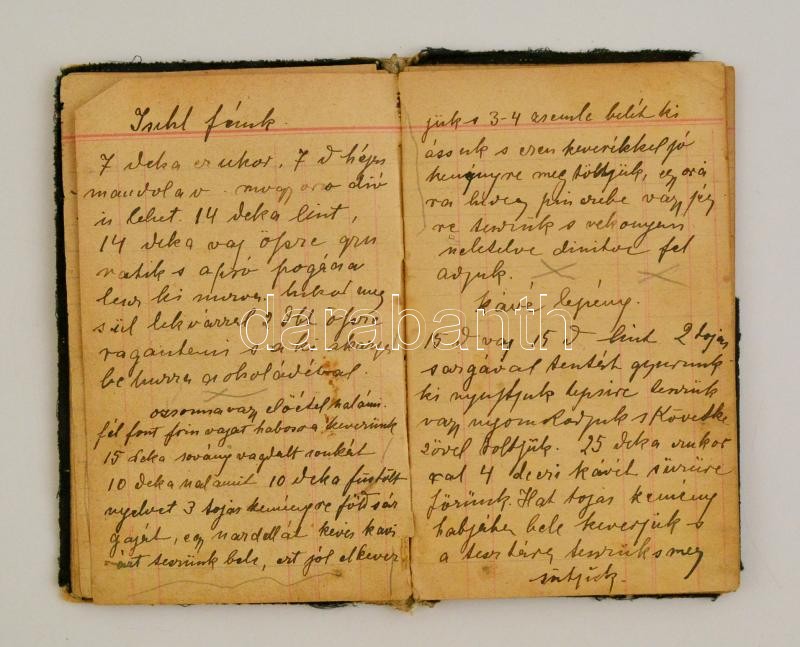 Ischl fánk.
7 deka czukor. 7 d héjas
mandolav mogyoro dió
is lehet. 14 deka liszt,
14 deka vaj össze gyu
ratik s apró pogácsa
lesz ki szurva. mikor meg
sül lekvárral 2 dbt össze
ragasztani s
be huzva csokoládéval.
ozsonna vagy előétel
fél font finom vajat habosra keverünk
15 deka sovány vagdalt sonkát
10 deka szalámit 10 deka füstölt
nyelvet 3 tojás keményre főtt sár
gáját, egy szardellát kevés kavi
árt teszünk bele, ezt jól elkever
jük s 3-4 zsemle belét ki
ássuk s ezen keverékkel jó
keményre megtöltjük, egy órá
ra hideg pinczébe vagy jég
re teszünk s vékonyan
szeletelve diszitve fel
adjuk.
Kávé lepény.
15 d vaj 15 d liszt 2 tojás
sárgával tésztát gyurunk
ki nyujtjuk tepsire teszük
vagy nyomokodjuk s követke
zővel töltjük. 25 deka czukor
ral 4 deczi kávét sürüre
főzünk. Hat tojás kemény
habjába bele keverjük s
a tésztára teszük s meg
sütjük.
darabanth